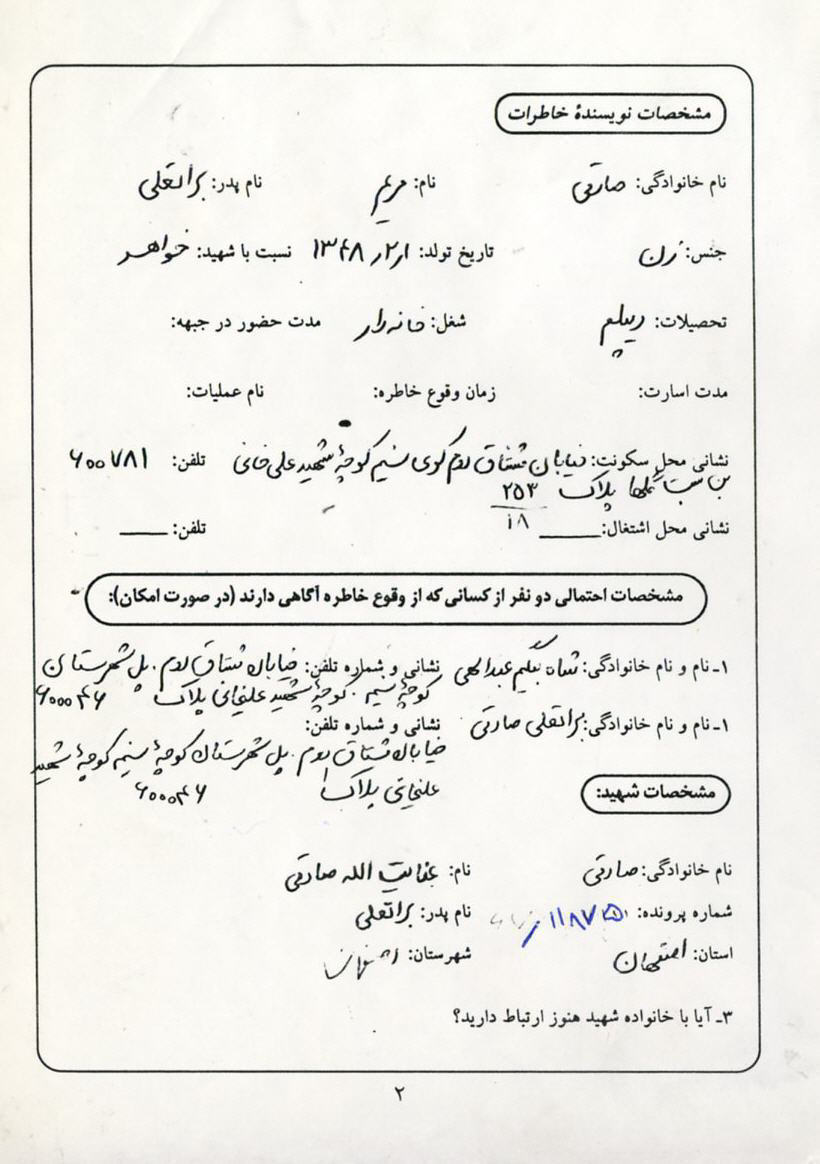 مشخصات نویسندهٔ خاطرات
نام خانوادگی: صادقی نام: مریم نام پدر: براتعلی
جنس: زن تاریخ تولد: ۱ر۲ر۱۳۴۸ نسبت با شهید: خواهر
تحصیلات: دیپلم شغل: خانه‌دار مدت حضور در جبهه:
مدت اسارت: زمان وقوع خاطره: نام عملیات:
نشانی محل سکونت: خیابان مشتاق دوم کوی نسیم کوچهٔ شهید علی‌خانی تلفن: ۶۰۰۷۸۱
بن بست گلها پلاک ۲۵۳
۱۸
نشانی محل اشتغال: ــــ تلفن: ــــ
مشخصات احتمالی دو نفر از کسانی که از وقوع خاطره آگاهی دارند (در صورت امکان):
۱ـ نام و نام خانوادگی: شاه بیگم عبدالهی نشانی و شماره تلفن: خیابان مشتاق دوم. پل شهرستان
کوچهٔ نسیم. کوچهٔ شهید علیخانی پلاک ۶۰۰۰۴۶
۱ـ نام و نام خانوادگی: براتعلی صادقی نشانی و شماره تلفن:
خیابان مشتاق دوم. پل شهرستان کوچهٔ نسیم کوچهٔ شهید
علیخانی پلاک ۱ ۶۰۰۰۴۶
مشخصات شهید:
نام خانوادگی: صادقی نام: عنایت الله صادقی
شماره پرونده: نام پدر: براتعلی
استان: اصفهان شهرستان: اصفهان
۳ـ آیا با خانواده شهید هنوز ارتباط دارید؟
۲